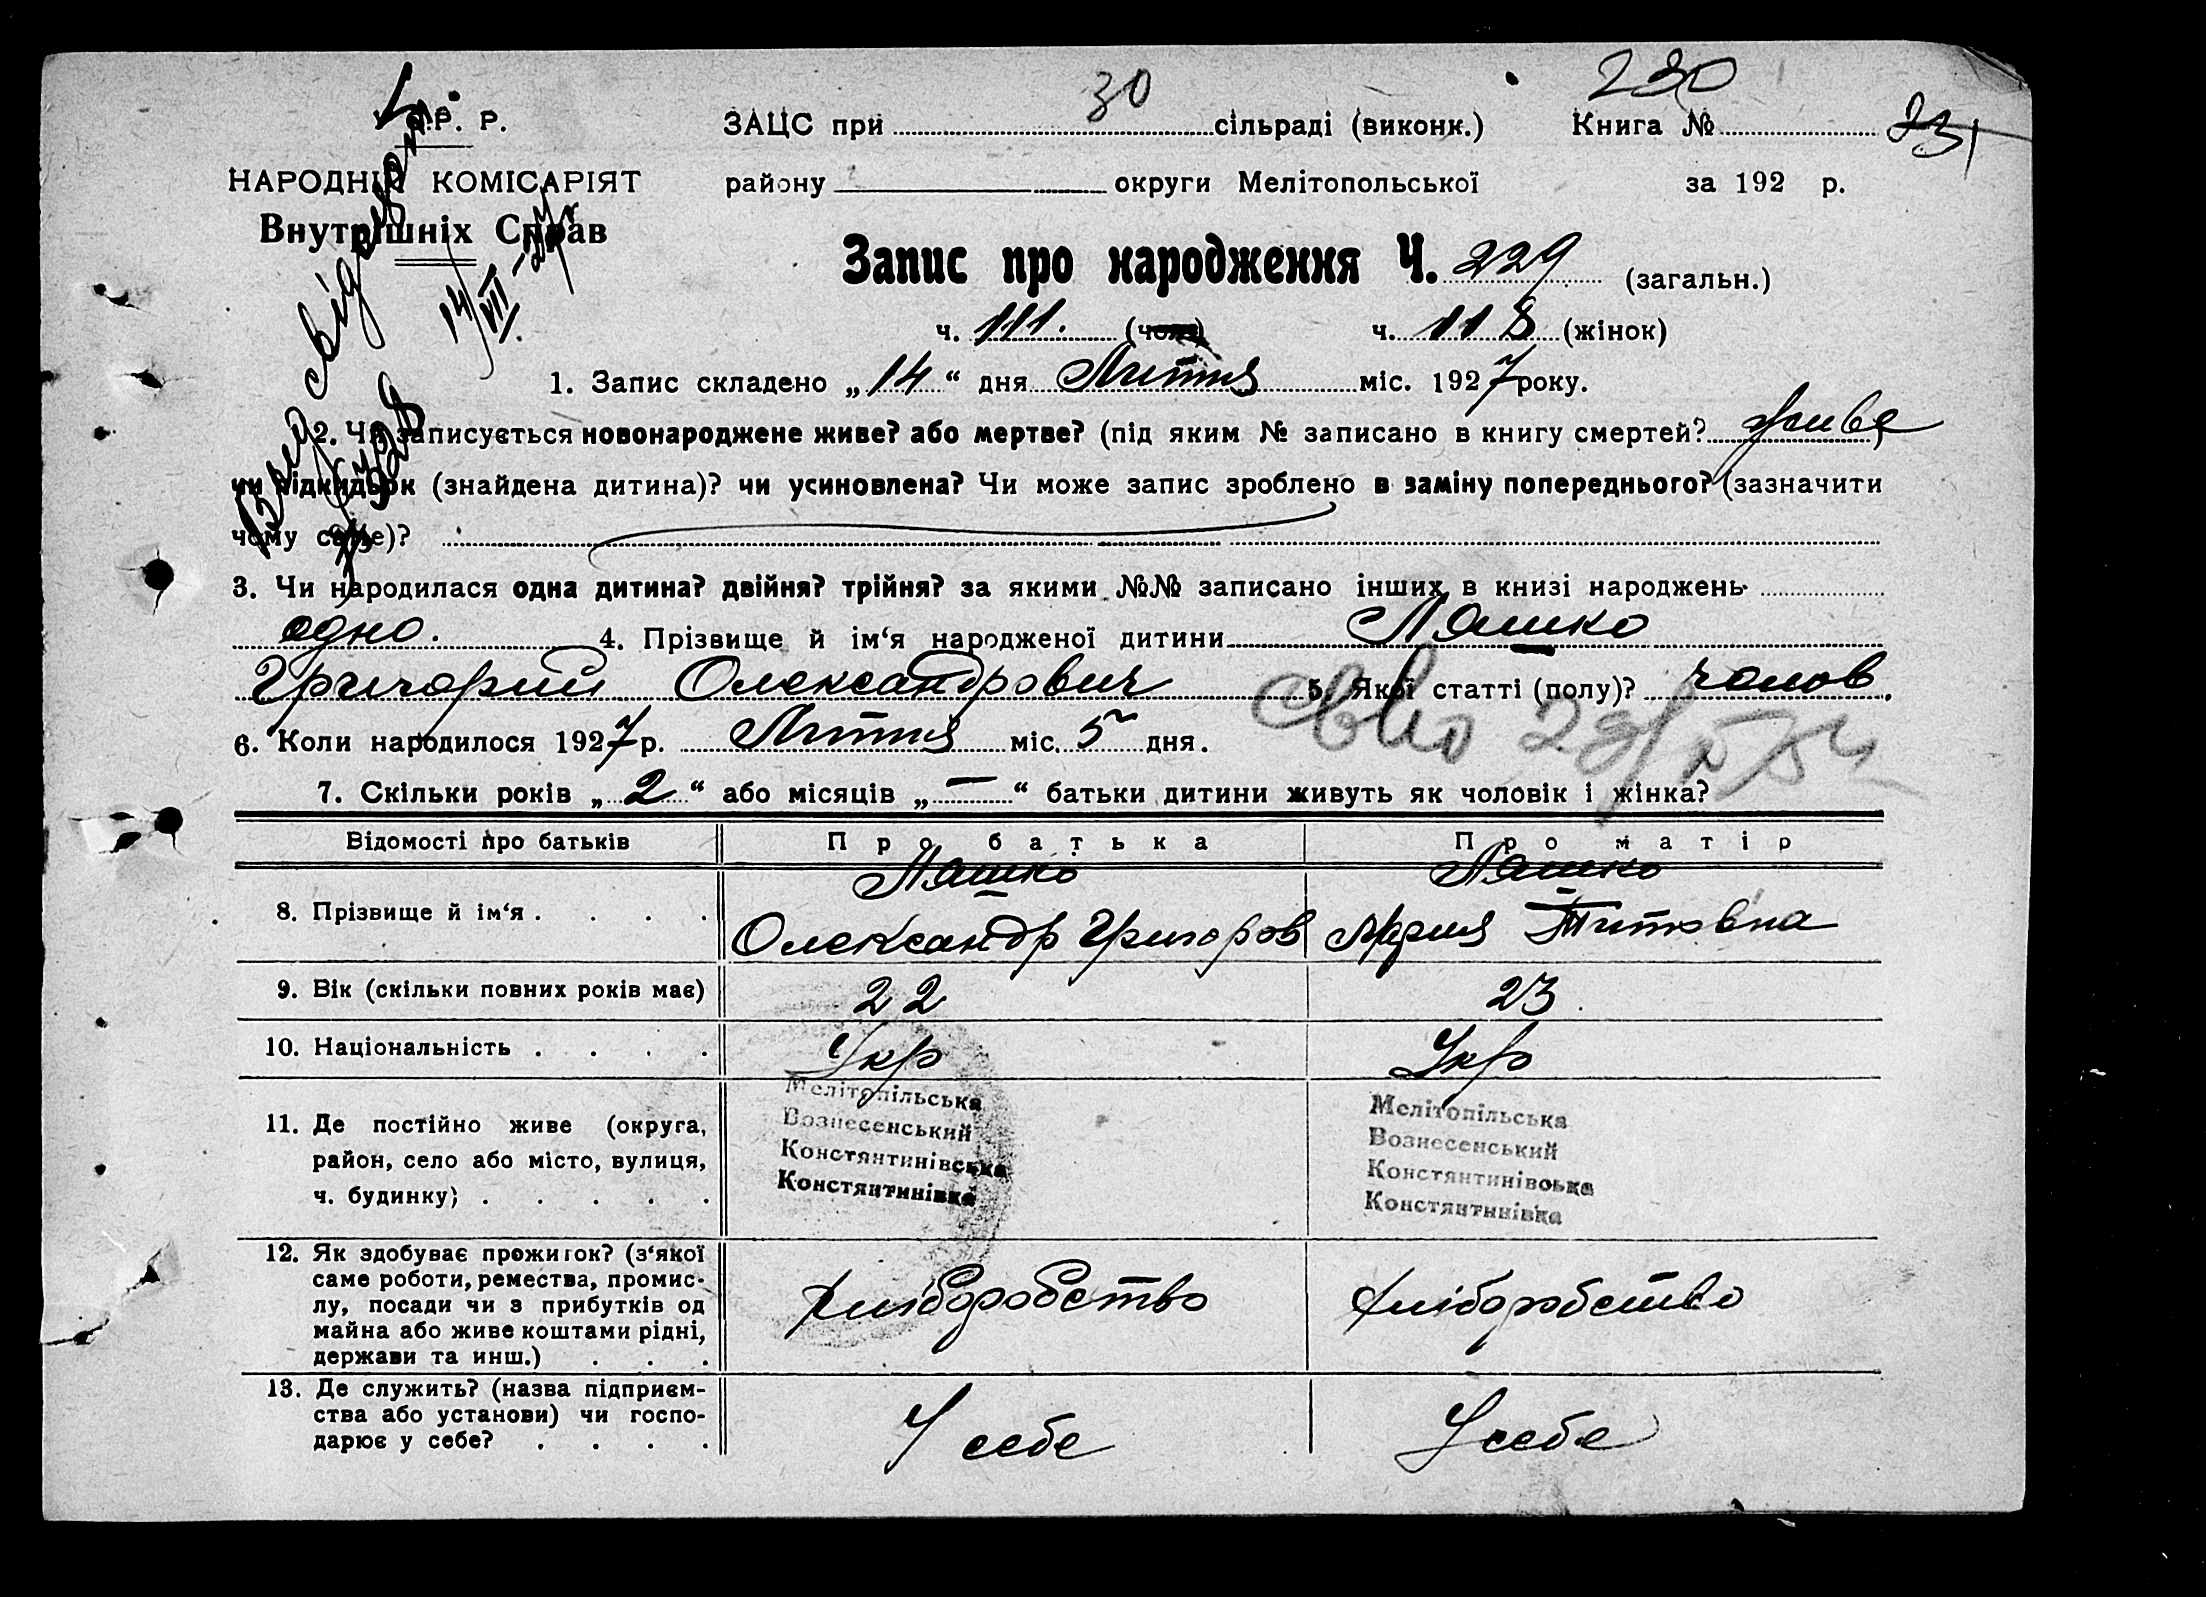 У.С.Р.Р.
НАРОДНІЙ КОМІСАРІЯТ
Внутрішніх Справ
ЗАЦС при 30 сільраді (виконк.) Книга № 230
231
району округи Мелітопольської за 192 р.
Запис про народження Ч. 229 (загальн.)
ч. 111. (чол.) ч. 118 (жінок)
14/VII-27р
1. Запис складено „14“ дня Липня міс. 1927 року.
2. Чи записується новонароджене живе? або мертве? (під яким № записано в книгу смертей? живе
чи підкидьок (знайдена дитина)? чи усиновлена? Чи може запис зроблено в заміну попереднього? (зазначити
чому саме)?
3. Чи народилася одна дитина? двійня? трійня? за якими №№ записано інших в книзі народжень
одно. 4. Прізвище й ім‘я народженої дитини Ляшко
Григорий Олександрович 5. Якої статті (полу)? чолов.
6. Коли народилося 1927 р. Липня міс. 5 дня.
7. Скільки років „2“ або місяців „—“ батьки дитини живуть як чоловік і жінка?
Відомості про батьків Про батька Про матір
8. Прізвище й ім‘я . . . . Ляшко Олександр Григоров Ляшко Мария Титовна
9. Вік (скільки повних років має) 22 23.
10. Національність . . . . Укр Укр
11. Де постійно живе (округа,
район, село або місто, вулиця,
ч. будинку) . . . . .
Мелітопільська
Вознесенський
Констянтинівська
Констянтинівка
Мелітопільська
Вознесенський
Констянтинівська
Констянтинівка
12. Як здобуває прожиток? (з‘якої
саме роботи, ремества, промис-
лу, посади чи з прибутків од
майна або живе коштами рідні,
держави та инш.) . . .
Хліборобство Хліборобство
13. Де служить? (назва підприєм-
ства або установи) чи госпо-
дарює у себе? . . . .
У себе У себе